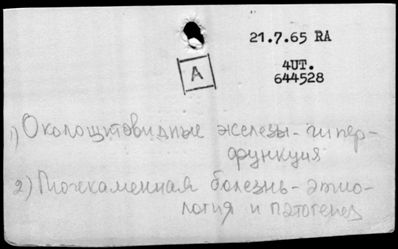 21.7.65 RA
4UT.
644528
A
1) Околощитовидные железы - гипер-
функция
2) Почекаменная болезнь - этио-
логия и патогенез